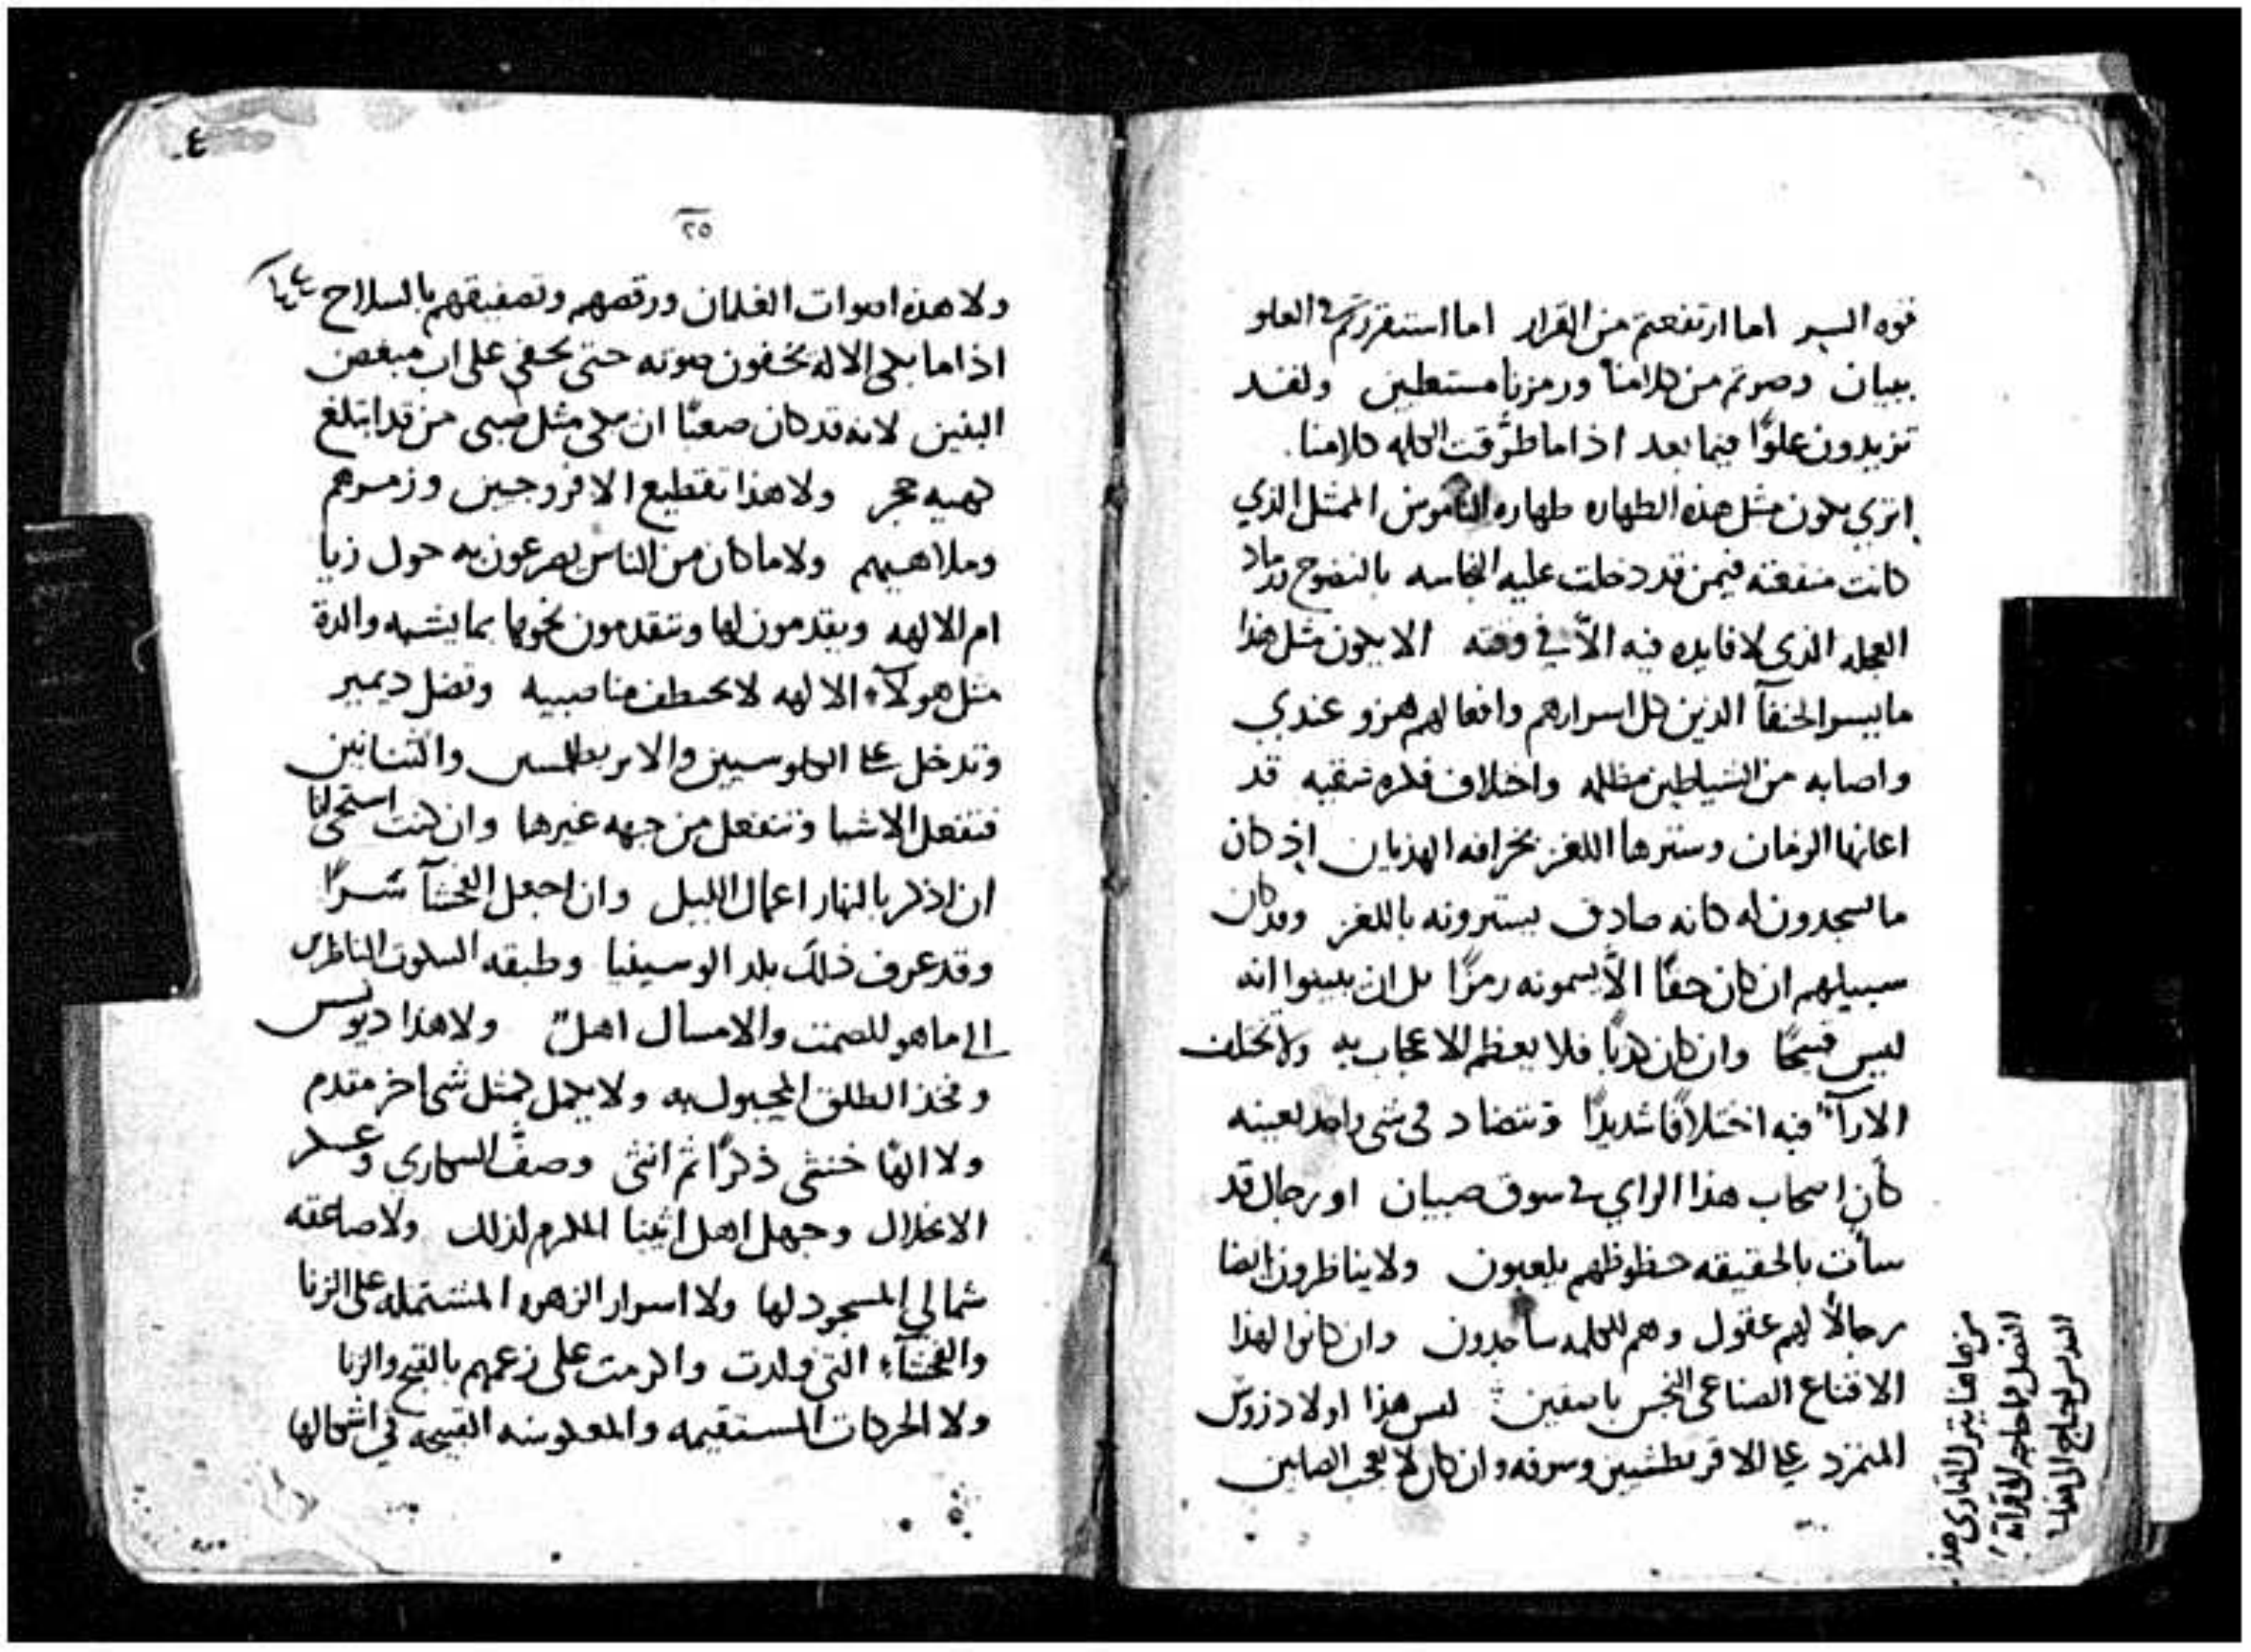 قوه السير اما ارتفعتم من القرار اما استقررتم في العلو
ببيان وصرتم من كلامنا ورمزنا مستعطين ولقد
تزيدون علوًا فيما بعد اذا ما طرقت الكلمه كلامنا
اترى يكون مثل هذه الطهاره طهاره الناموس الممثل الذي
كانت منفعته فيمن قد دخلت عليه النجاسه بالنضوح رماد
العجله الذي لا فايده فيه الا في وقته الا يكون مثل هذا
ما ييسر الحنفآ الذين كل اسرارهم وافعالهم هزو عندي
واصابه من الشياطين مظلمه واختلاف فكره شقيه قد
اعانها الزمان وسترها اللغز بخرافه الهذيان اذ كان
ما يسجدون له كانه صادق يسترونه باللغز وقد كان
سبيلهم ان كان حقًا الا يسمونه رمزًا بل ان يبينوا انه
ليس قبيحًا وان كان كذبًا فلا يعظم الاعجاب به ولا تختلف
الارآء فيه اختلافًا شديدًا وتتضاد في شي واحد بعينه
كان اصحاب هذا الراي في سوق صبيان او رجال قد
سأت بالحقيقه حظوظهم يلعبون ولا يناظرون ايضا
رجالًا لهم عقول وهم للكلمه ساجدون وان كانوا لهذا
الاقناع الصناعي النجس باصقين ليس هذا اولاد زوس
المتمرد على الاقريطشيين وسرقه وان كان لا يعجب الصابين
من هاهنا يترك القارى هذا
الفصل فما حاجه الى قرآته
٤٠
٢٥
ولا هذه اصوات الغلمان ورقصهم وتصفيقهم بالسلاح
اذا ما بكى الاله يخفون صوته حتى يخفى على اب مبغض
البنين لانه قد كان صعبًا ان يبكي مثل صبى من قد ابتلع
كهيه حجر ولا هذا تقطيع الافروجيين وزمرهم
وملاهيهم ولا ما كان من الناس يصرعون به حول زيا
ام الالهه ويقدمون لها وتتقدمون نحوها بما يشبه والدة
مثل هولآء الالهه لا تختطف منا صبيه وتضل ديمير
وتدخل علينا الكلوسيين والاتربطلمس والتنانين
فتفعل الاشيا وتنفعل من جهه غيرها وان كنت استحى انا
ان اذكر بالنهار اعمال الليل وان اجعل الفحشآ سرًا
وقد عرف ذلك بلد الوسينيا وطبقه السكوت الناظرين
الى ما هو للصمت والامساك اهل ولا هذا ديونس
وفخذ الطلق المحبول به ولا يكمل كمثل شي اخر متقدم
ولا الهًا خنثى ذكرًا ثم انثى وصف السكارى وعسكر
الانحلال وجهل اهل اثينا المكرم لذلك ولا صاعقه
شمالي المسجود لها ولا اسرار الزهره المشتمله على الزنا
والفحشآء التي ولدت واكرمت على زعمهم بالقبح والزنا
ولا الحركات المستقيمه والمعكوسه القبيحه في اشكالها